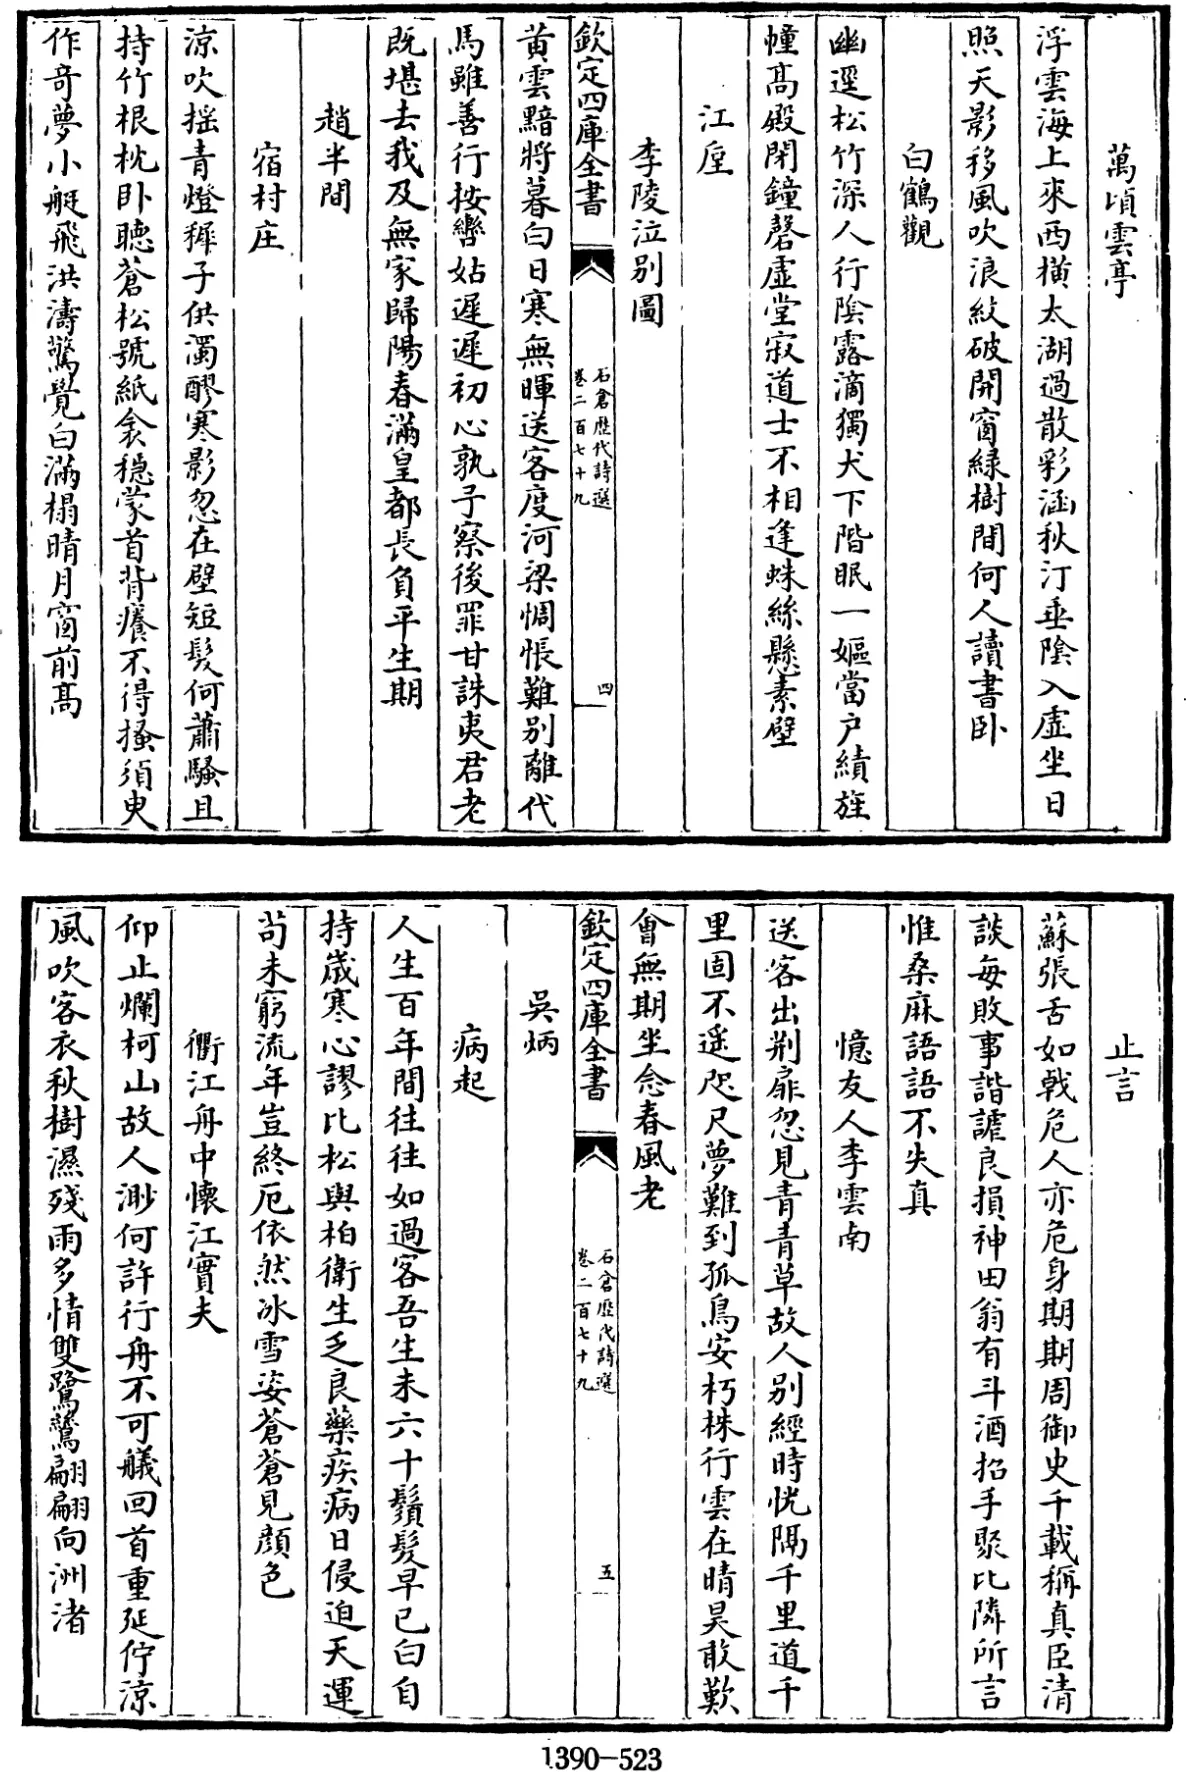 萬頃雲亭
浮雲海上來西橫太湖過散彩涵秋汀垂陰入虛坐日
照天影移風吹浪紋破開窗緑樹間何人讀書卧
白鶴觀
幽逕松竹深人行陰露滴獨犬下階眠一嫗當户績旌
幢髙殿閉鐘磬虛堂寂道士不相逢蛛絲懸素壁
江㕓
李陵泣别圖
欽定四庫全書
石倉歴代詩選
卷二百七十九
四
黄雲黯將暮白日寒無暉送客度河梁惆悵難别離代
馬雖善行按轡姑遲遲初心孰子察後罪甘誅夷君老
既堪去我及無家歸陽春滿皇都長負平生期
趙半間
宿村庄
涼吹揺青燈穉子供濁醪寒影忽在壁短髮何蕭騷且
持竹根枕卧聽蒼松號紙衾穩蒙首背癢不得搔須臾
作竒夢小艇飛洪濤驚覺白滿榻晴月窗前髙
止言
蘇張舌如戟危人亦危身期期周御史千載稱真臣清
談每敗事諧謔良損神田翁有斗酒招手聚比隣所言
惟桑麻語語不失真
憶友人李雲南
送客出荆扉忽見青青草故人别經時恍隔千里道千
里固不遥咫尺夢難到孤鳥安朽株行雲在晴昊敢歎
會無期坐念春風老
欽定四庫全書
石倉歴代詩選
卷二百七十九
五
吳炳
病起
人生百年間往往如過客吾生未六十鬚髮早已白自
持歲寒心謬比松與柏衛生乏良藥疾病日侵迫天運
茍未窮流年豈終厄依然冰雪姿蒼蒼見顔色
衢江舟中懷江實夫
仰止爛柯山故人渺何許行舟不可艤回首重延佇涼
風吹客衣秋樹濕殘雨多情雙鷺鷥翩翩向洲渚
1390-523